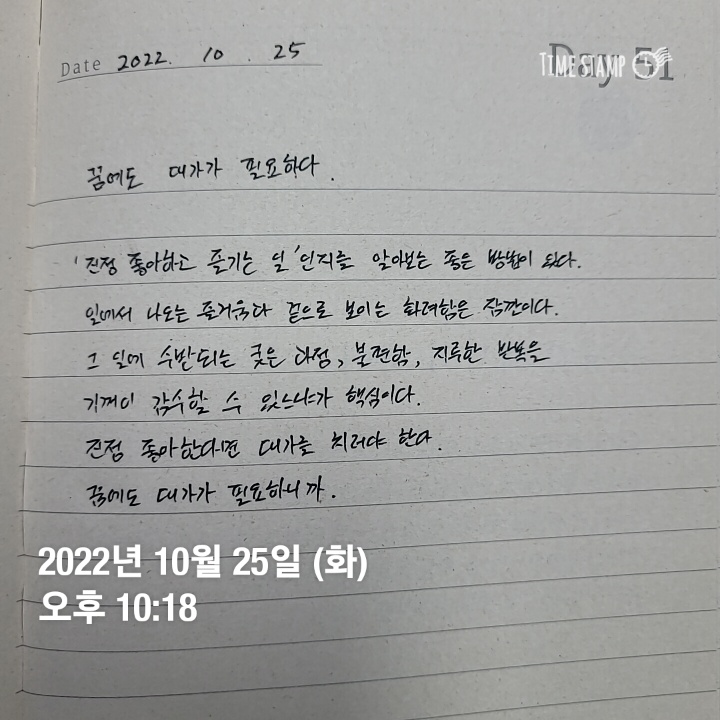 Date 2022. 10. 25
Day 51
TIME STAMP
꿈에도 대가가 필요하다.
'진정 좋아하고 즐기는 일'인지를 알아보는 좋은 방법이 있다.
일에서 나오는 즐거움과 겉으로 보이는 화려함은 잠깐이다.
그 일에 수반되는 궂은 과정, 불편함, 지루한 반복을
기꺼이 감수할 수 있느냐가 핵심이다.
진정 좋아한다면 대가를 치러야 한다.
꿈에도 대가가 필요하니까.
2022년 10월 25일 (화)
오후 10:18